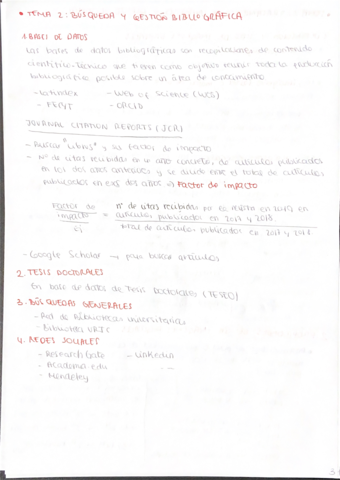 • TEMA 2: BÚSQUEDA Y GESTIÓN BIBLIOGRÁFICA
1. BASES DE DATOS
Las bases de datos bibliográficas son recopilaciones de contenido
científico-técnico que tienen como objetivo reunir toda la producción
bibliográfica posible sobre un área de conocimiento
- Latindex - Web of Science (WCS)
- FECYT - ORCID
JOURNAL CITATION REPORTS (JCR)
- Buscar "Libros" y su factor de impacto
- Nº de citas recibidas en un año concreto, de artículos publicados
en los dos años anteriores y se divide entre el total de artículos
publicados en esos dos años → Factor de impacto
Factor de impacto = nº de citas recibidas en la revista en 2019 en
artículos publicados en 2017 y 2018
total de artículos publicados en 2017 y 2018
- Google Scholar → para buscar artículos
2. TESIS DOCTORALES
En base de datos de Tesis Doctorales (TESEO)
3. BÚSQUEDAS GENERALES
- Red de Bibliotecas universitarias
- Biblioteca URJC
4. REDES SOCIALES
- Research Gate - Linkedin
- Academia.edu ...
- Mendeley